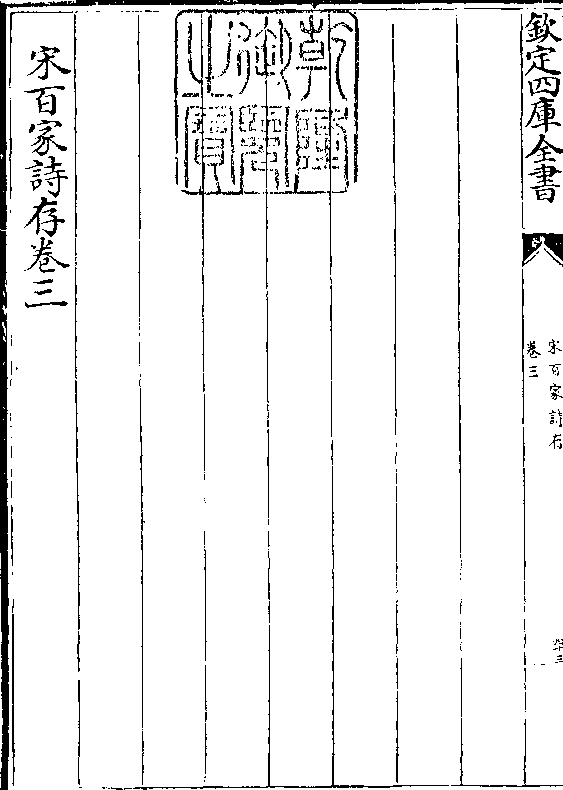 欽定四庫全書
宋百家詩存
卷三
乾隆
御覽
之寶
宋百家詩存卷三